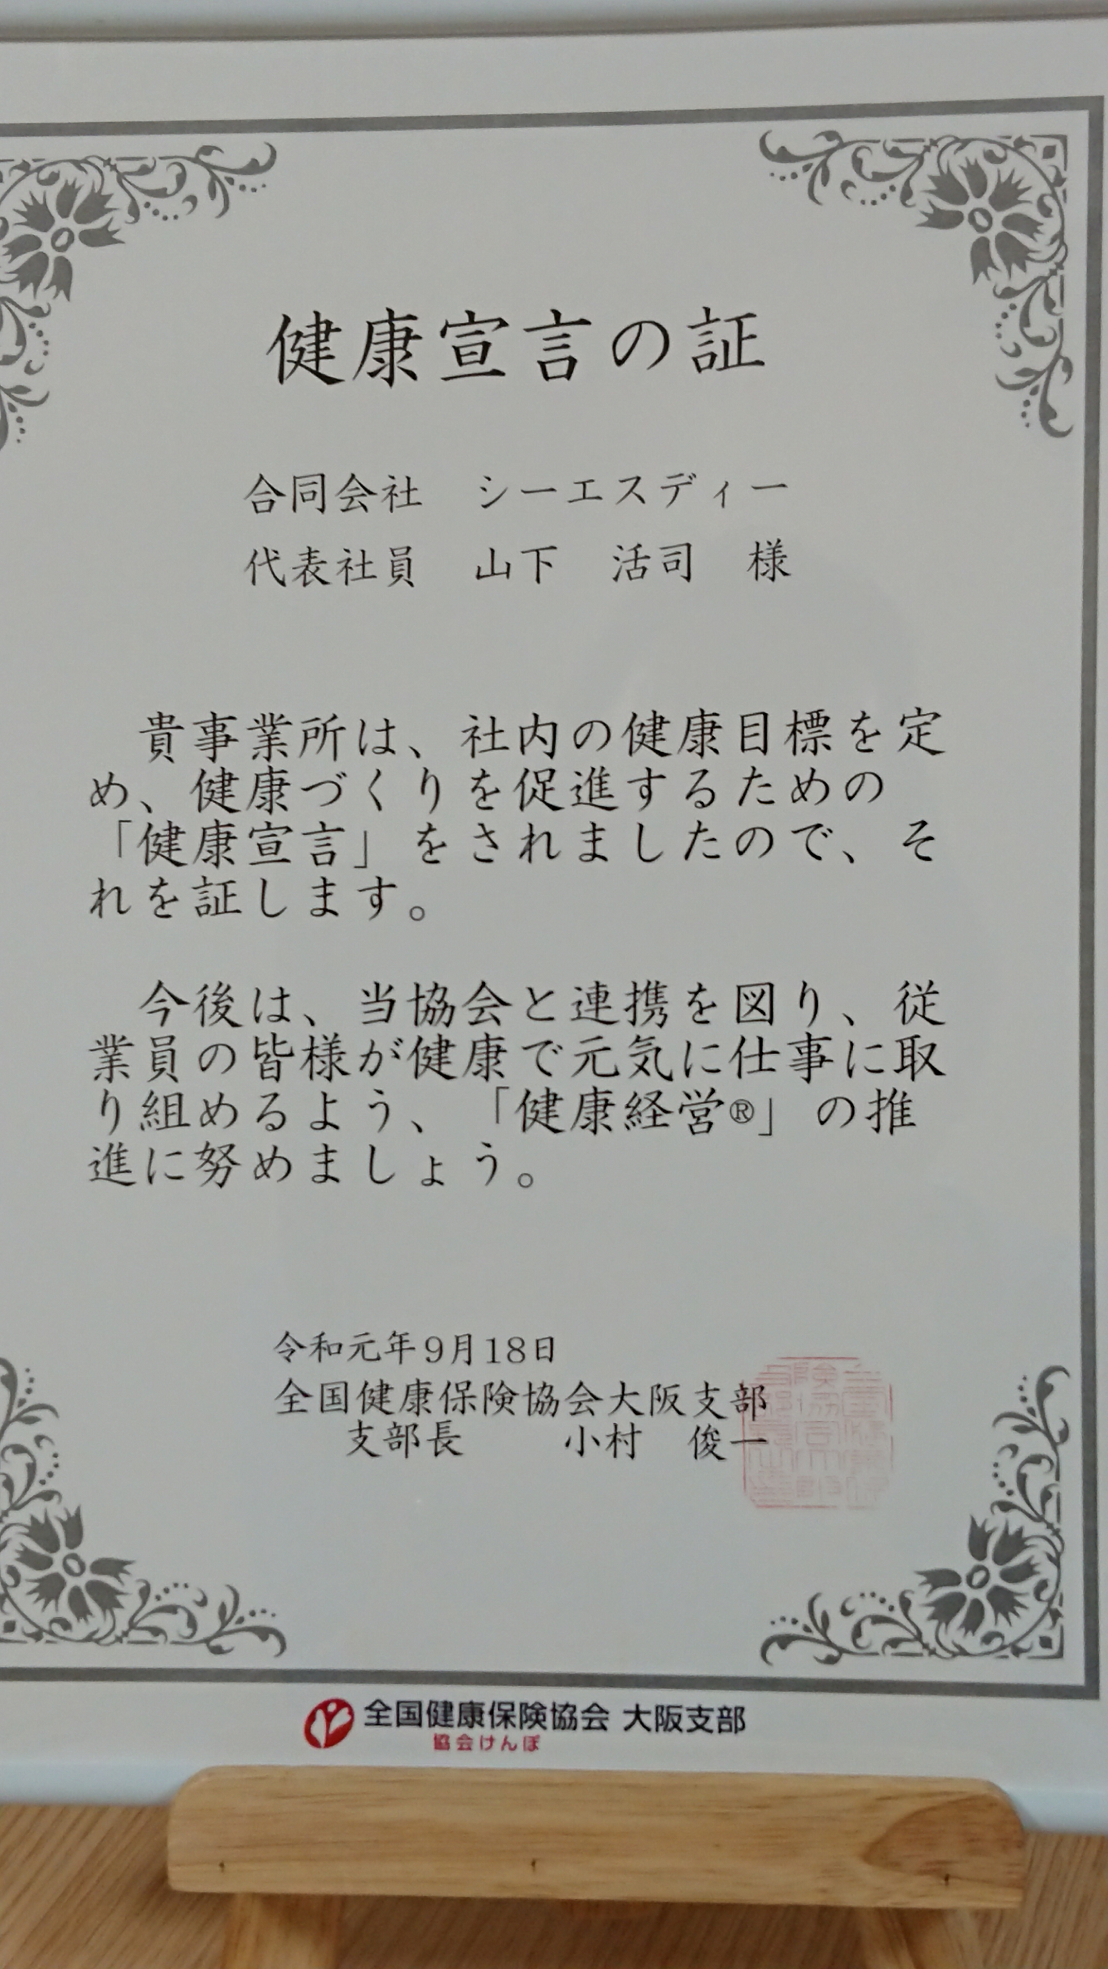 健康宣言の証
合同会社　シーエスディー
代表社員　山下　活司　様
貴事業所は、社内の健康目標を定
め、健康づくりを促進するための
「健康宣言」をされましたので、そ
れを証します。
今後は、当協会と連携を図り、従
業員の皆様が健康で元気に仕事に取
り組めるよう、「健康経営®」の推
進に努めましょう。
令和元年9月18日
全国健康保険協会大阪支部
支部長　小村　俊一
全国健康保険協会 大阪支部
協会けんぽ